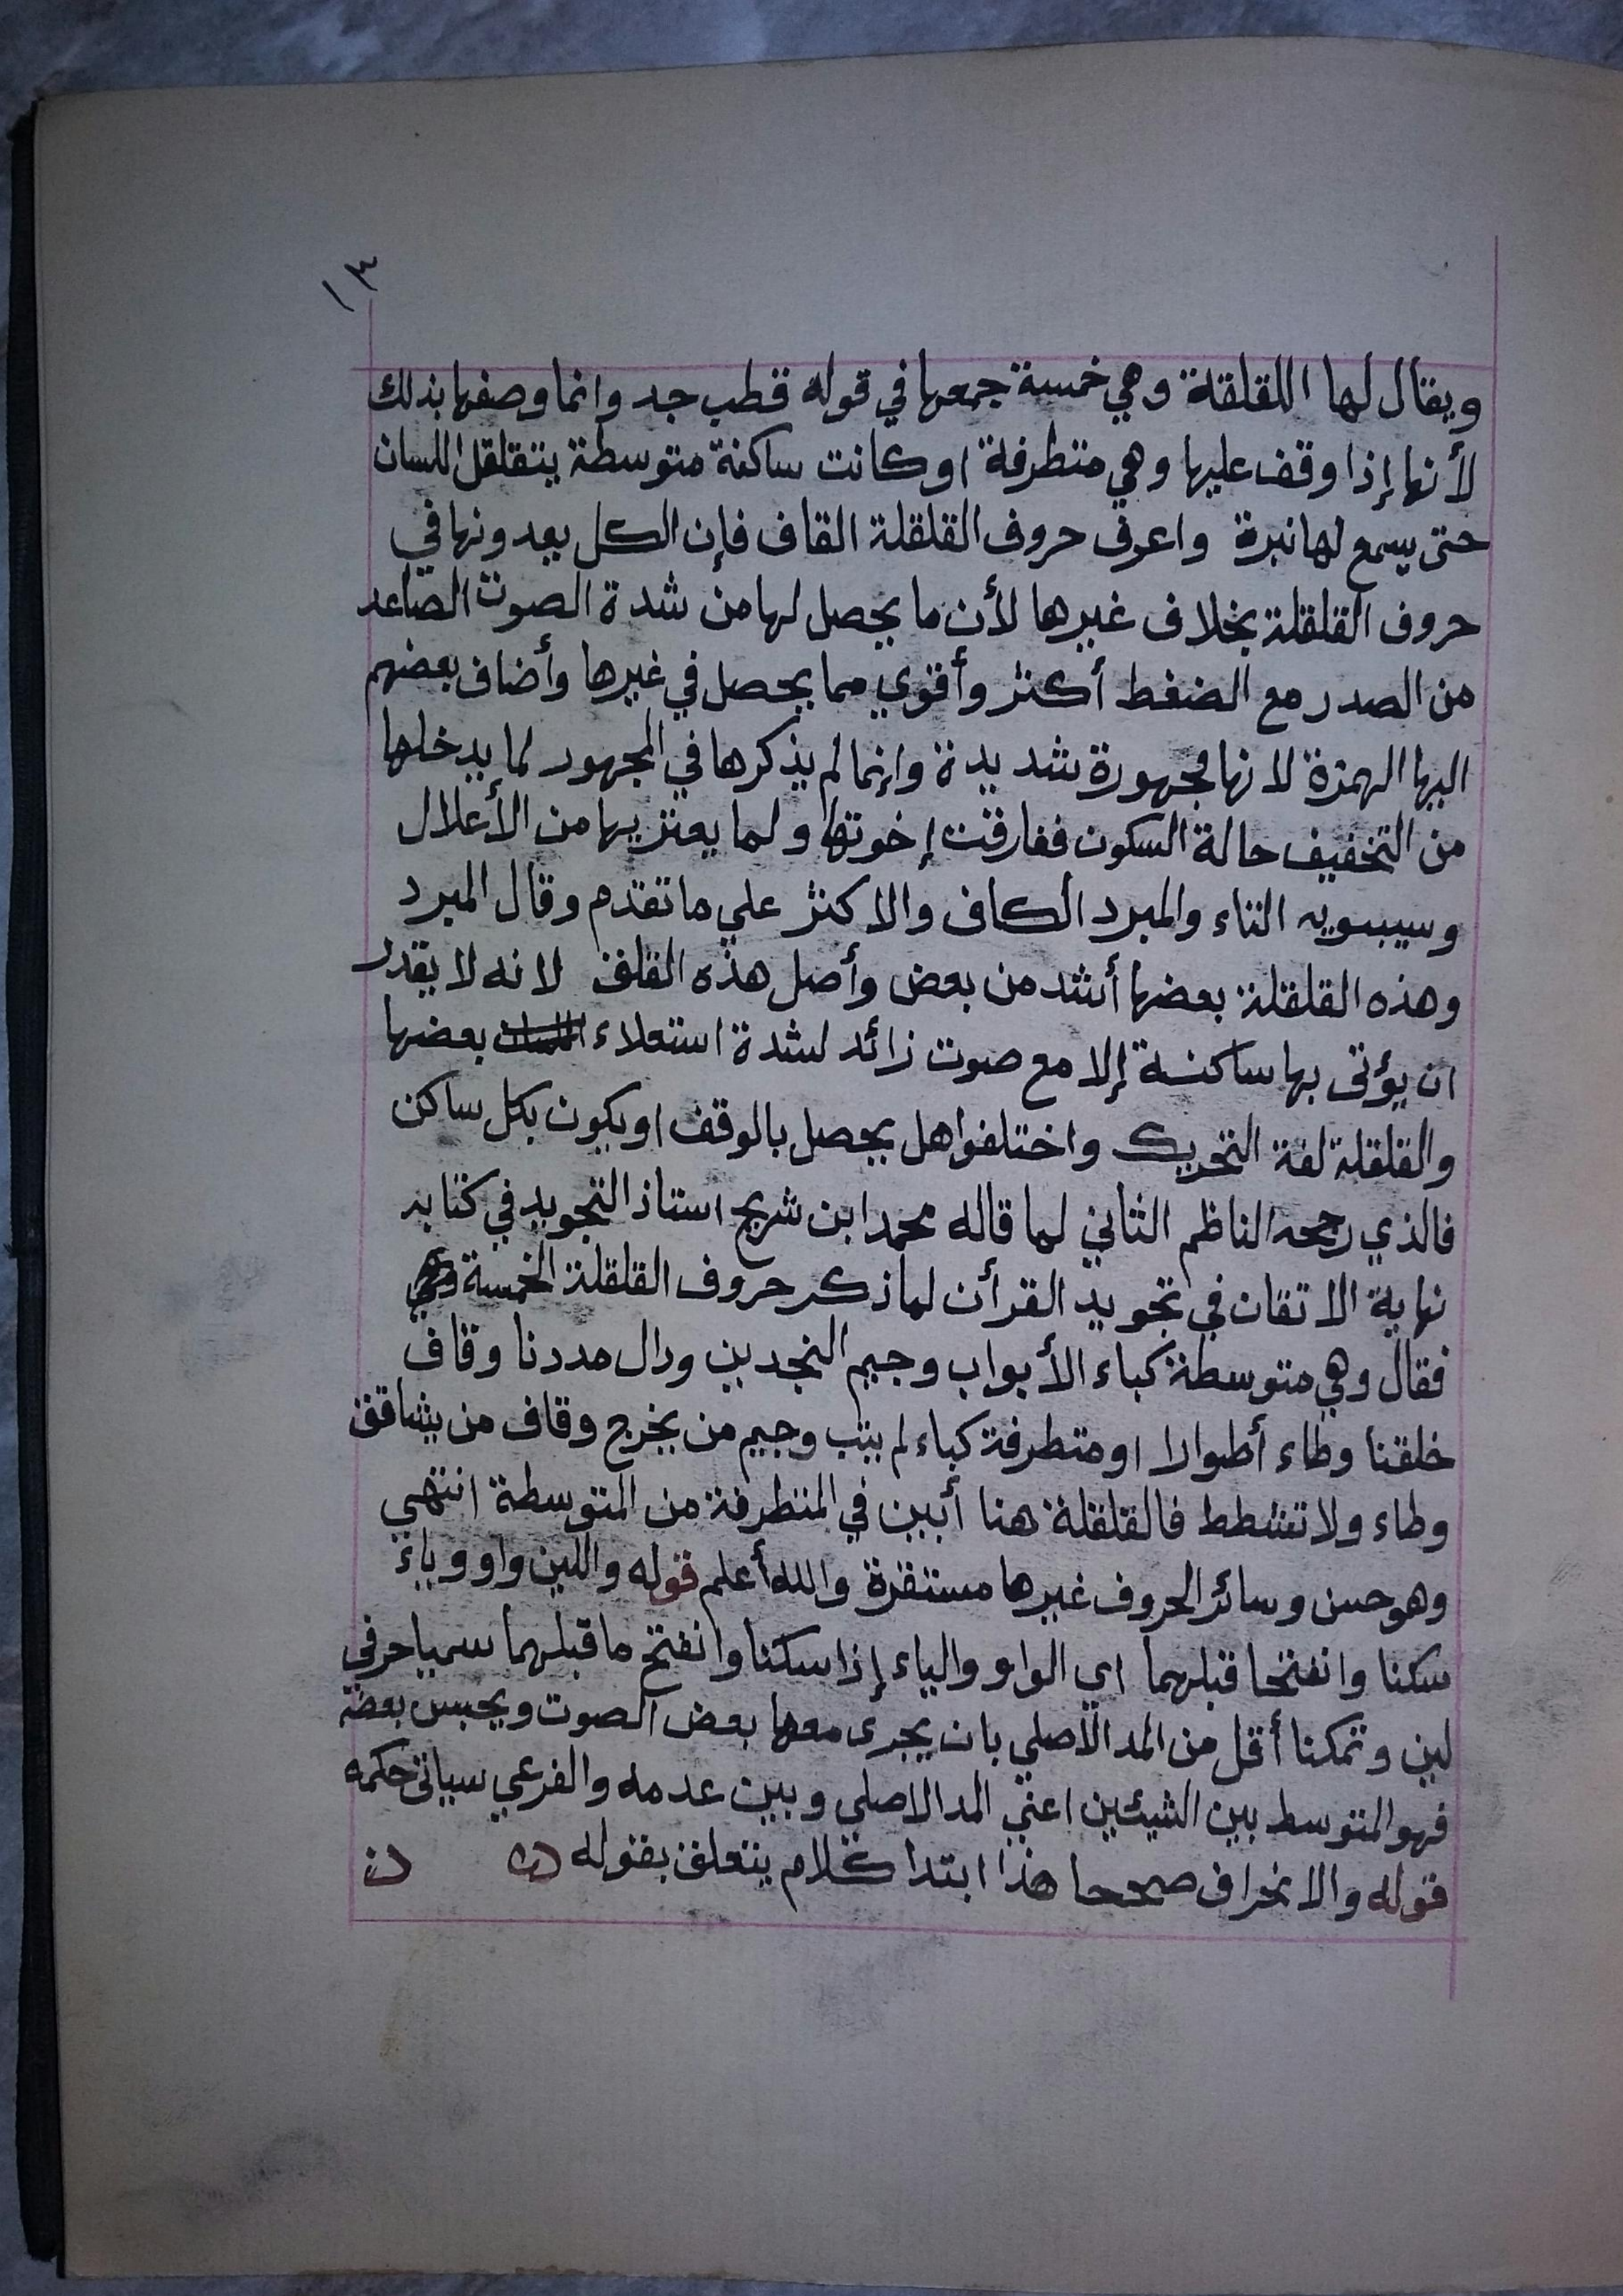 ١٣
ويقال لها اللقلقة وهي خمسة جمعها في قوله قطب جد وانما وصفها بذلك
لأنها إذا وقف عليها وهي متطرفة او كانت ساكنة متوسطة يتقلقل اللسان
حتى يسمع لها نبرة واعرف حروف القلقلة القاف فإن الكل يعدونها في
حروف القلقلة بخلاف غيرها لأن ما يحصل لها من شدة الصوت الصاعد
من الصدر مع الضغط أكثر وأقوي مما يحصل في غيرها وأضاف بعضهم
اليها الهمزة لانها مجهورة شديدة وإنما لم يذكرها في المجهور لما يدخلها
من التخفيف حالة السكون ففارقت إخوتها ولما يعتريها من الأعلال
وسيبويه التاء والمبرد الكاف والاكثر علي ما تقدم وقال المبرد
وهذه القلقلة بعضها أشد من بعض وأصل هذه القلقـ لانه لا يقدر
ان يؤتى بها ساكنة إلا مع صوت زائد لشدة استعلاء بعضها
والقلقلة لغة التحريك واختلفوا هل يحصل بالوقف او يكون بكل ساكن
فالذي رجحه الناظم الثاني لما قاله محمد ابن شريح استاذ التجويد في كتابه
نهاية الاتقان في تجويد القرأن لما ذكر حروف القلقلة الخمسة وهي
فقال وهي متوسطة كباء الأبواب وجيم النجدين ودال مددنا وقاف
خلقنا وطاء أطوارا او متطرفة كباء لم يتب وجيم من يخرج وقاف من يشاقق
وطاء ولا تشطط فالقلقلة هنا أبين في المتطرفة من المتوسطة انتهي
وهو حسن وسائر الحروف غيرها مستقرة والله أعلم قوله واللين واو وياء
سكنا وانفتحا قبلهما اي الواو والياء إذا سكنا وانفتح ما قبلهما سميا حرفي
لين وتمكنا أقل من المد الأصلي بان يجرى معها بعض الصوت ويحبس بعضه
فهو المتوسط بين الشيئين اعني المد الاصلي وبين عدمه والفرعي سياتى حكمه
قوله والانحراف صححا هذا ابتدا كلام يتعلق بقوله